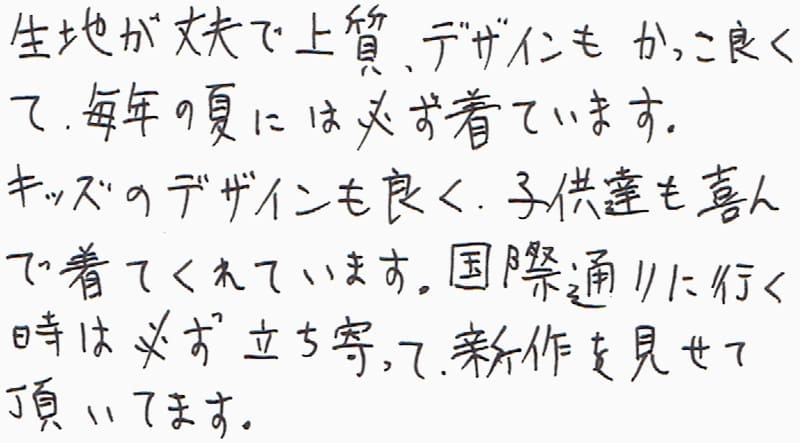 生地が丈夫で上質、デザインもかっこ良く
て、毎年の夏には必ず着ています。
キッズのデザインも良く、子供達も喜ん
で着てくれています。国際通りに行く
時は必ず立ち寄って、新作を見せて
頂いてます。